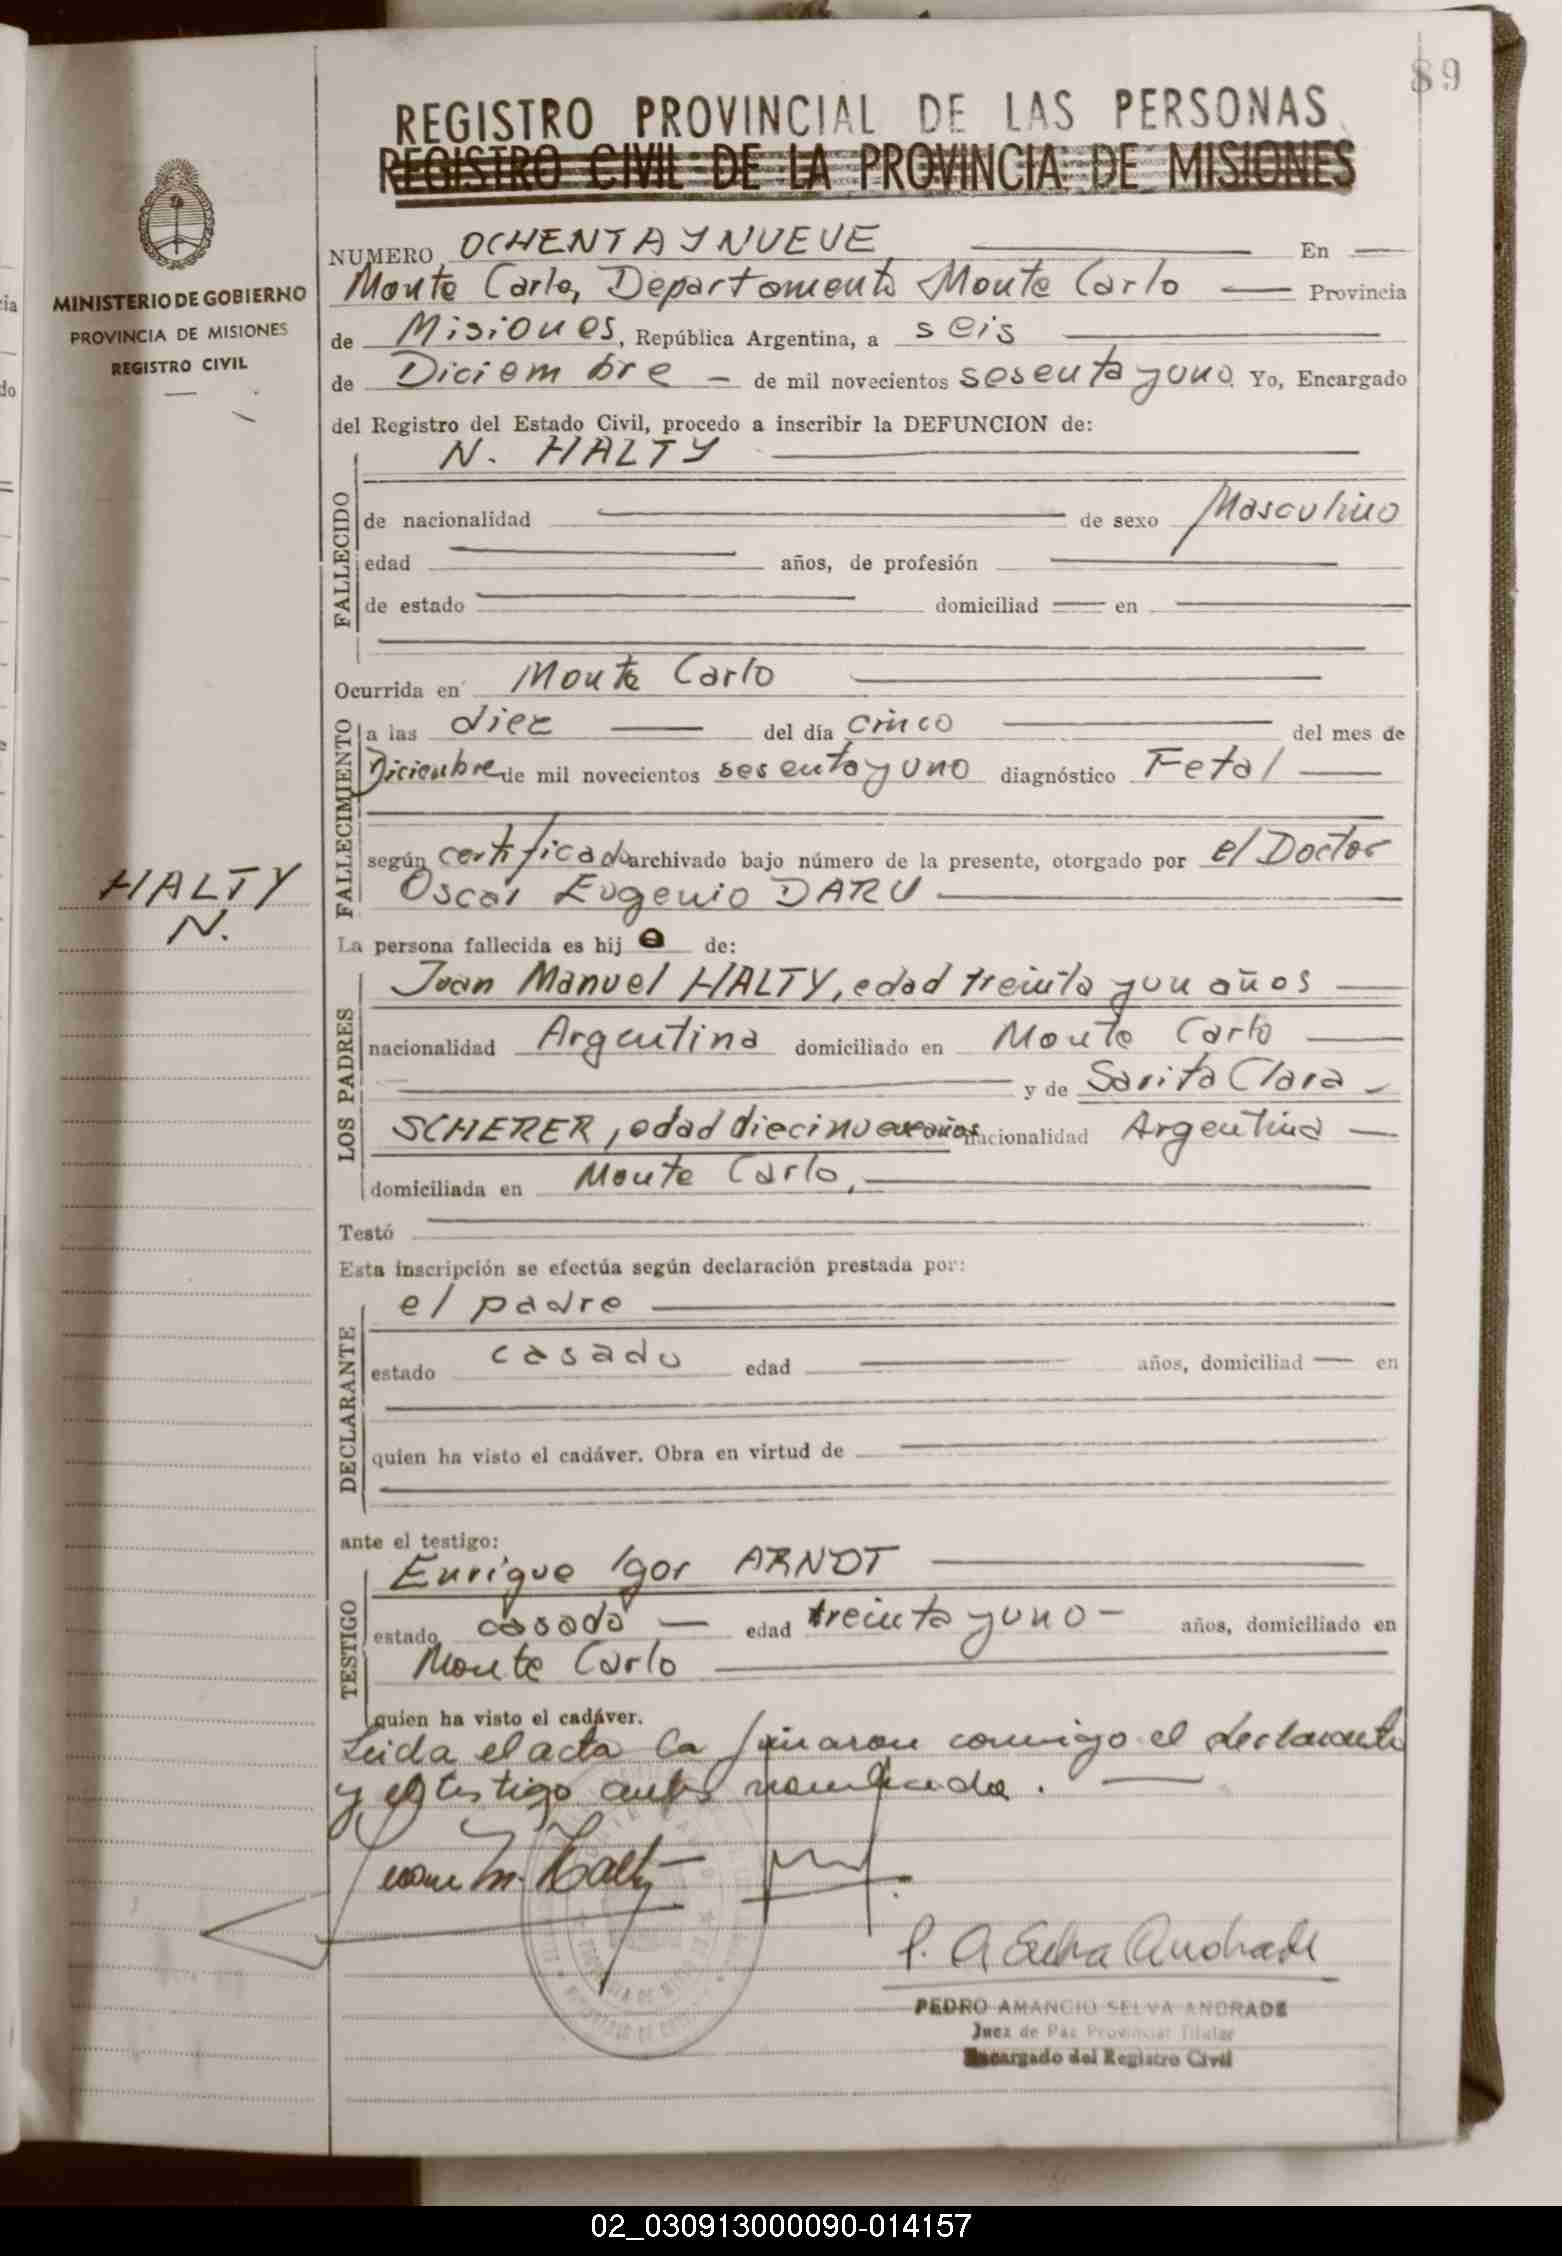 89
REGISTRO PROVINCIAL DE LAS PERSONAS
REGISTRO CIVIL DE LA PROVINCIA DE MISIONES
MINISTERIO DE GOBIERNO
PROVINCIA DE MISIONES
REGISTRO CIVIL
NUMERO OCHENTA Y NUEVE En
Monte Carlo, Departamento Monte Carlo Provincia
de Misiones, República Argentina, a seis
de Diciembre de mil novecientos sesenta y uno Yo, Encargado
del Registro del Estado Civil, procedo a inscribir la DEFUNCION de:
N. HALTY
FALLECIDO
de nacionalidad de sexo Masculino
edad años, de profesión
de estado domiciliad en
Ocurrida en Monte Carlo
FALLECIMIENTO
a las diez del día cinco del mes de
Diciembre de mil novecientos sesenta y uno diagnóstico Fetal
según certificado archivado bajo número de la presente, otorgado por el Doctor
Oscar Eugenio DARU
HALTY
N.
La persona fallecida es hij o de:
LOS PADRES
Juan Manuel HALTY, edad treinta y un años
nacionalidad Argentina domiciliado en Monte Carlo
y de Sarita Clara
SCHERER, edad diecinueve años nacionalidad Argentina
domiciliada en Monte Carlo,
Testó
Esta inscripción se efectúa según declaración prestada por:
DECLARANTE
el padre
estado casado edad años, domiciliad en
quien ha visto el cadáver. Obra en virtud de
ante el testigo:
TESTIGO
Enrique Igor ARNDT
estado casado edad treinta y uno años, domiciliado en
Monte Carlo
quien ha visto el cadáver.
Leida el acta la firmaron conmigo el declarante
y el testigo antes nombrado.
Juan M. Halty
P. A Selva Andrade
PEDRO AMANCIO SELVA ANDRADE
Juez de Paz Provincial Titular
Encargado del Registro Civil
02_030913000090-014157